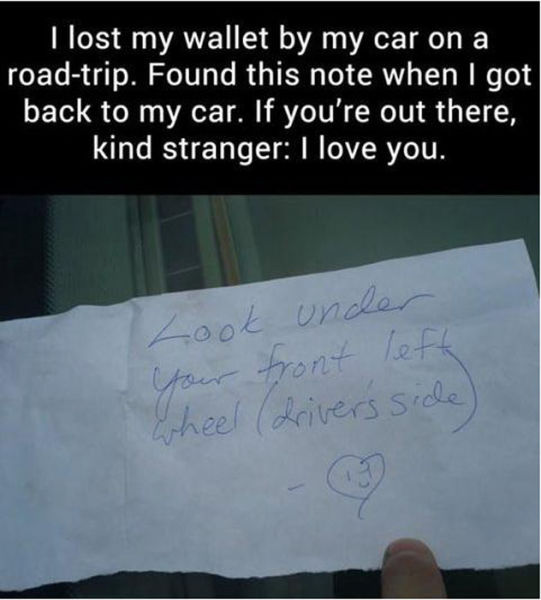 I lost my wallet by my car on a
road-trip. Found this note when I got
back to my car. If you're out there,
kind stranger: I love you.
Look under
your front left
wheel (driver's side)
-